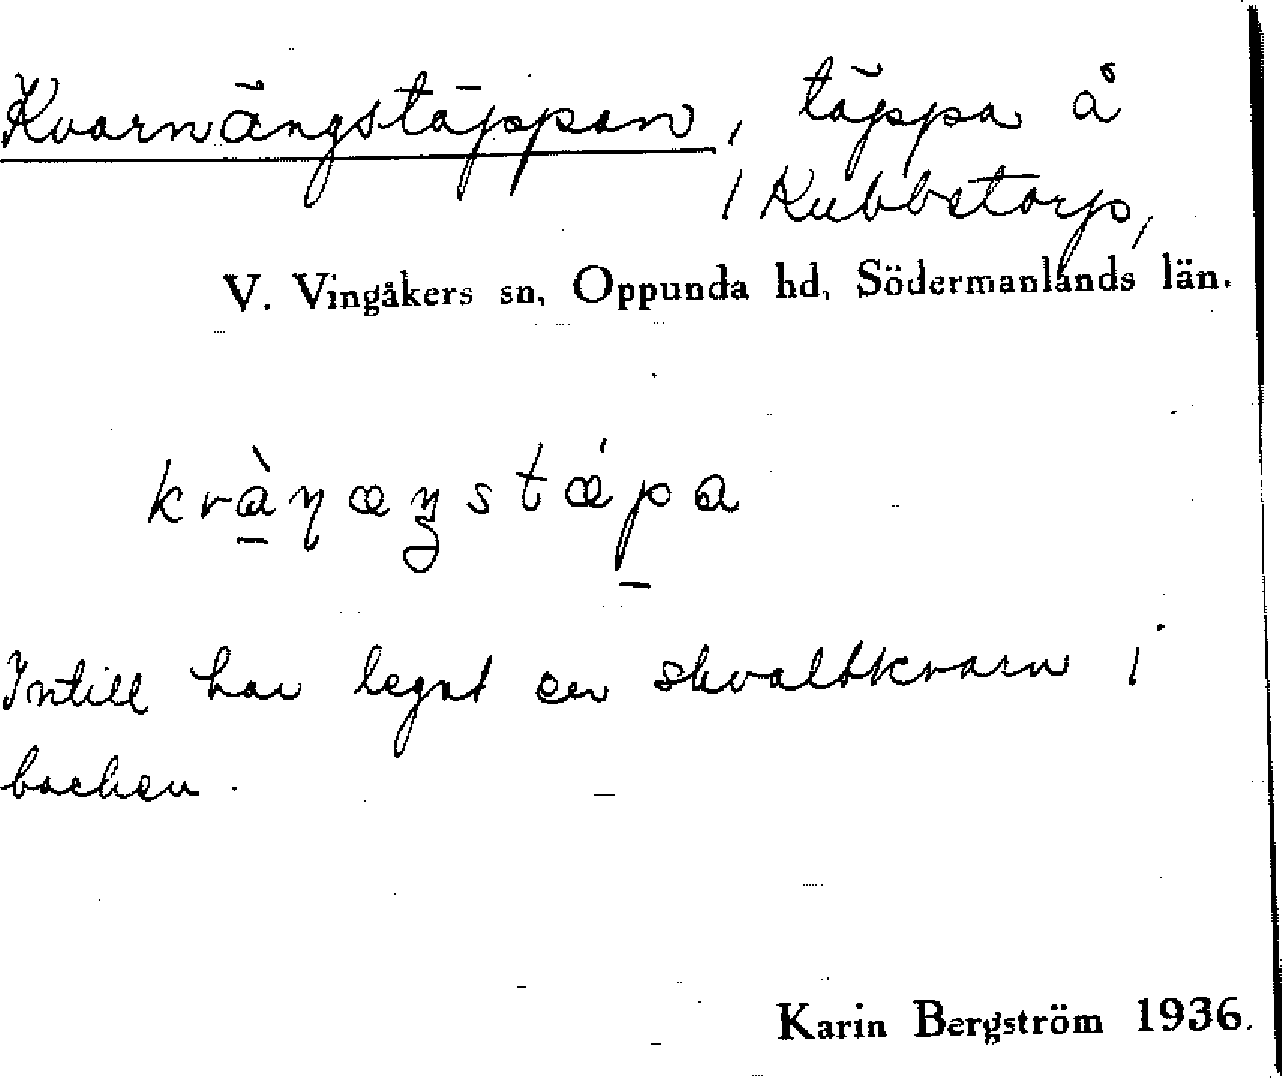 Kvarnängstäppan, täppa å
/ Kubbetorp,
V. Vingåkers sn, Oppunda hd, Södermanlands län.
Intill har legat en skvaltkvarn i
backen.
Karin Bergström 1936.